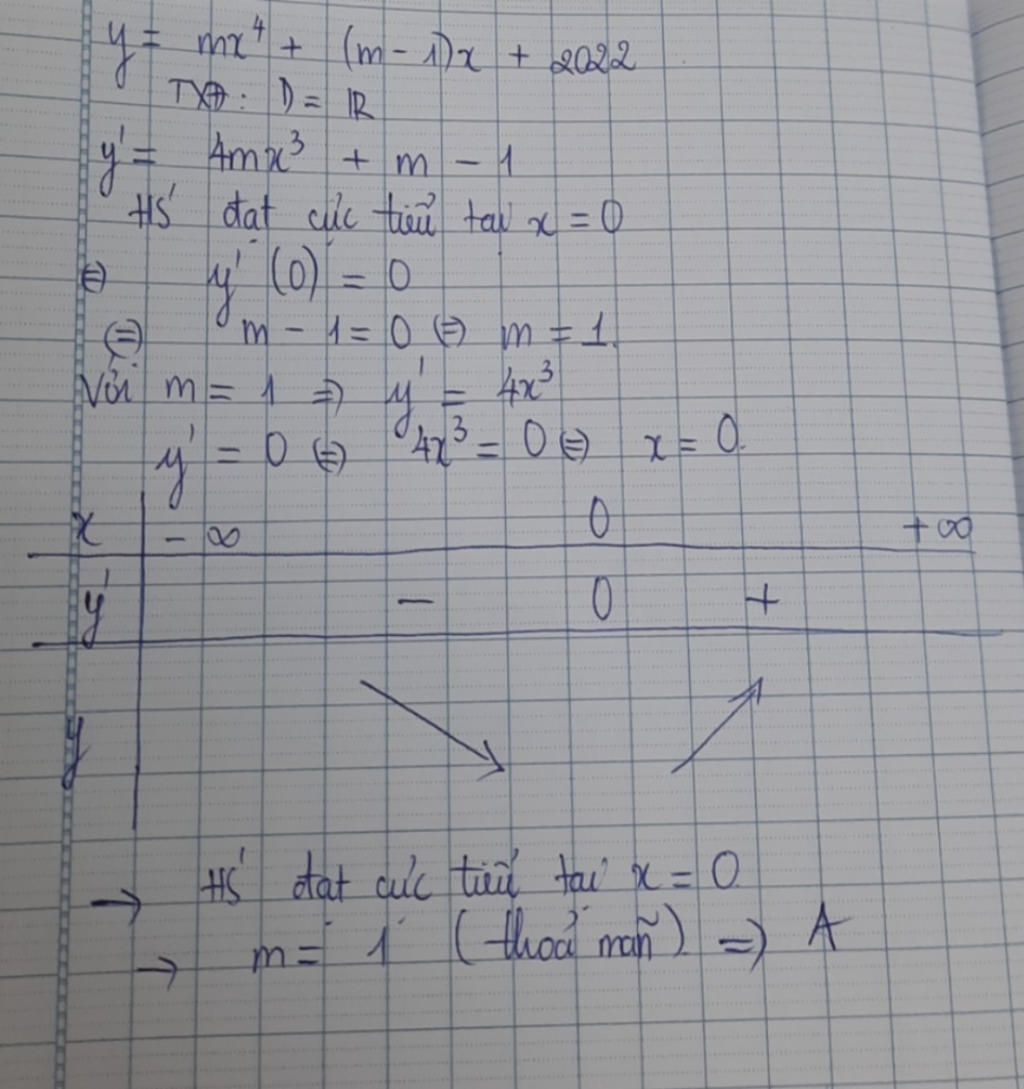 y = mx⁴ + (m - 1)x + 2022
TXĐ: D = ℝ
y' = 4mx³ + m - 1
HS đạt cực tiểu tại x = 0
⇔ y'(0) = 0
⇔ m - 1 = 0 ⇔ m = 1.
Với m = 1 ⇒ y' = 4x³
y' = 0 ⇔ 4x³ = 0 ⇔ x = 0.
x -∞ 0 +∞
y' - 0 +
y ↘ ↗
→ HS đạt cực tiểu tại x = 0.
→ m = 1 (thoả mãn) ⇒ A